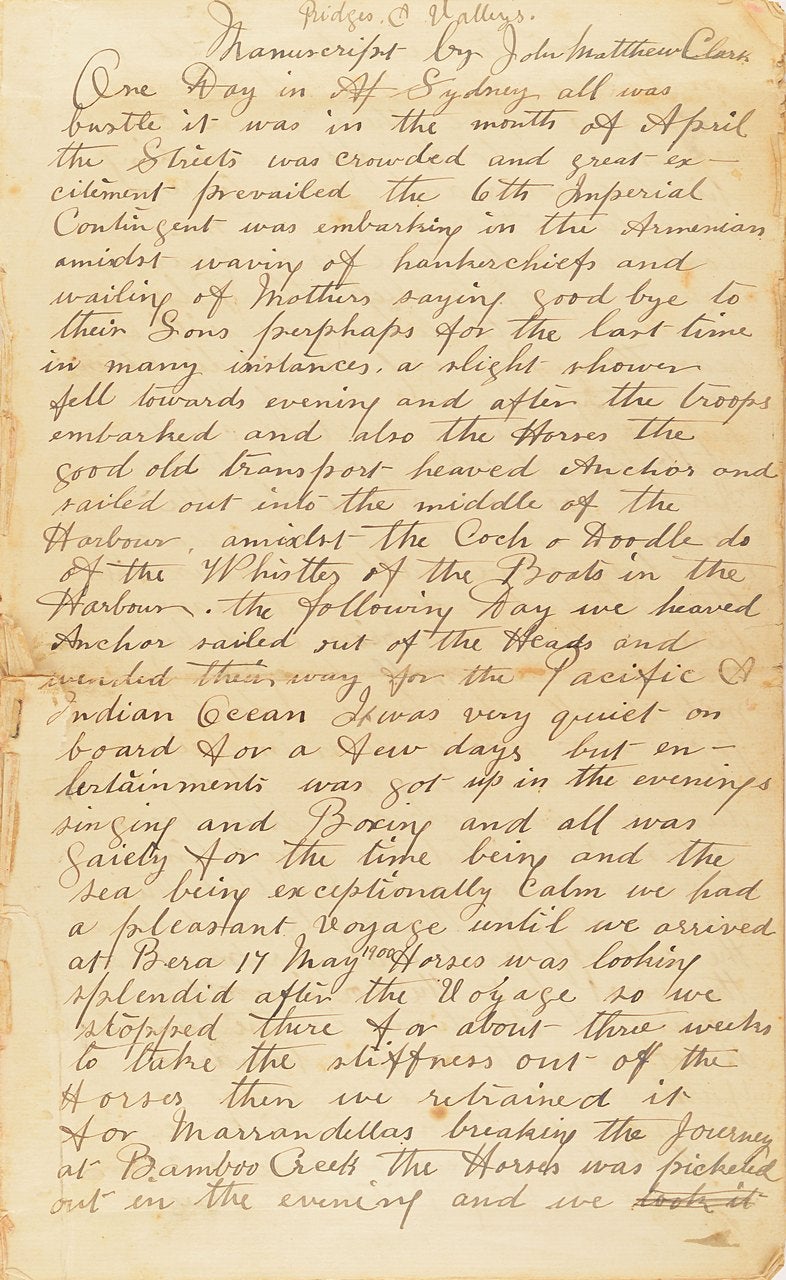 Ridges. & Valleys.
Manuscript by John Matthew Clark
One Day in Sydney all was
bustle it was in the month of April
the Streets was crowded and great ex-
citement prevailed the 6th Imperial
Contingent was embarking in the Armenian
amidst waving of hankerchiefs and
wailing of Mothers saying good bye to
their Sons perphaps for the last time
in many instances. a slight shower
fell towards evening and after the troops
embarked and also the Horses the
good old transport heaved Anchor and
sailed out into the middle of the
Harbour, amidst the Coch o Doodle do
of the Whistles of the Boats in the
Harbour. the following Day we heaved
Anchor sailed out of the Heads and
wended their way for the Pacific &
Indian Ocean It was very quiet on
board for a few days but en-
tertainments was got up in the evenings
singing and Boxing and all was
gaiety for the time being and the
sea being exceptionally Calm we had
a pleasant Voyage until we arrived
at Bera 17 May 1900 Horses was looking
splendid after the Voyage so we
stopped there for about three weeks
to take the stiffness out off the
Horses then we retrained it
for Marrandellas breaking the Journey
at Bamboo Creek the Horses was picketed
out in the evening and we took it